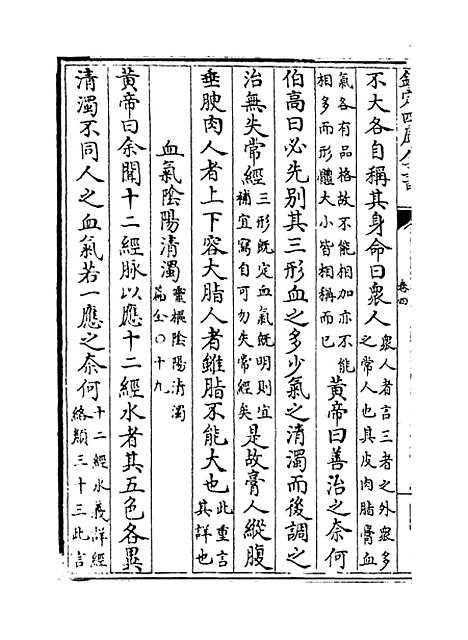 欽定四庫全書 卷四
不大各自稱其身命曰衆人衆人者言三者之外衆多之常人也其皮肉脂膏血
氣各有品格故不能相加亦不能相多而形體大小皆相稱而已黃帝曰善治之奈何
伯高曰必先别其三形血之多少氣之清濁而後調之
治無失常經三形既定血氣既明則宜補宜寫自可勿失常經矣是故膏人縱腹
垂腴肉人者上下容大脂人者雖脂不能大也此重言其詳也
血氣陰陽清濁靈樞陰陽清濁篇全〇十九
黃帝曰余聞十二經脉以應十二經水者其五色各異
清濁不同人之血氣若一應之奈何十二經水義詳經絡類三十三此言